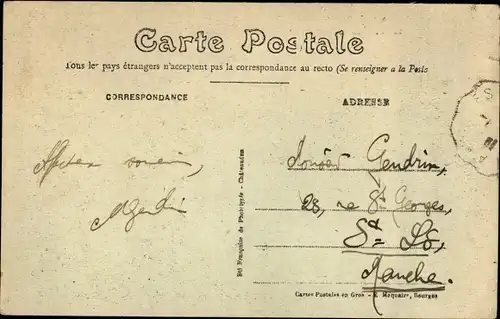 Carte Postale
Tous les pays étrangers n'acceptent pas la correspondance au recto (Se renseigner a la Poste
CORRESPONDANCE
ADRESSE
Gendrin,
23, rue St Georges,
St Lô,
Manche.
Sté Française de Phototypie - Châteaudun
Cartes Postales en Gros - E. Maquaire, Bourges